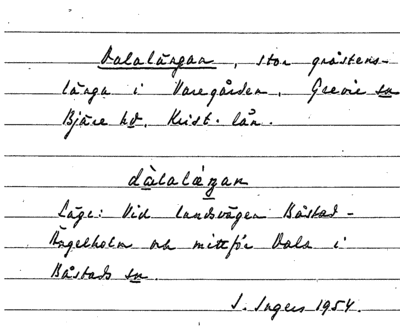 Dalalängan, stor gråstens-
länga i Varegården, Grevie sn
Bjäre hd, Krist. län.
dàlalæŋan
Läge: Vid landsvägen Båstad-
Ängelholm och mittför Dala i
Båstads sn.
I. Ingers 1954.